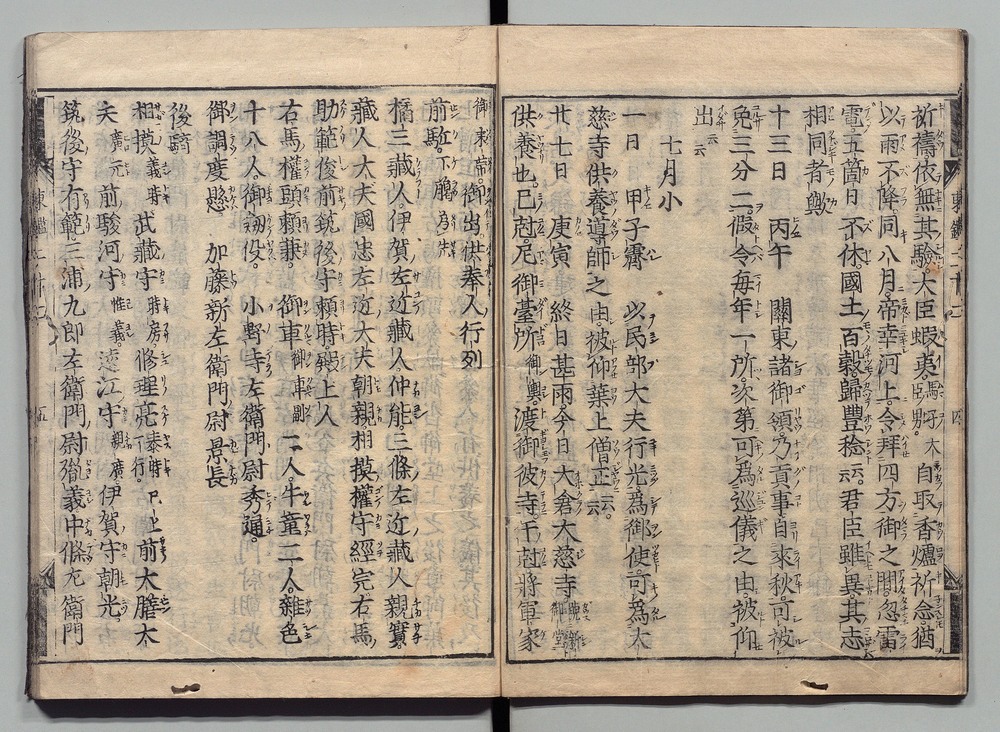 祈禱依無其驗。大臣蝦夷。自取香爐。祈念猶
以雨不降。同八月。帝幸河上。令拜四方御之間。忽雷
電。五箇日不休。國土百穀歸豊稔。云云。君臣雖異其志
相同者歟
十三日 丙午 關東諸御領乃貢事。自來秋。可被
免三分二。假令毎年一所。次第可爲巡儀之由。被仰
出。云云
七月小
一日 甲子霽 以民部大夫行光爲御使。可爲大
慈寺供養導師之由。被仰葉上僧正。云云。
廿七日 庚寅 終日甚雨今日大倉大慈寺 供養也。
供養也。巳尅。尼御臺所御輿。渡御彼寺午尅。將軍家
御束帶 御出供奉人行列
前駈下﨟爲先
橘三藏人。伊賀左近藏人。仲能。三條左近藏人親實。
藏人大夫國忠左近大夫朝親相摸權守經定右馬
助範俊前筑後守頼時殿上人
右馬權頭頼茂。 御車御車副二人。牛童一人。雜色
十八人。御劔役。 小野寺左衛門尉秀通。
御調度懸 加藤新左衛門尉景長
後騎
相摸守義時武藏守時房修理亮泰時 前大膳大
夫廣元前駿河守惟義。遠江守親廣伊賀守朝光。
筑後守有範三浦九郎左衛門尉 義中條右衛門
東鑑二十二 四
東鑑二十二 五